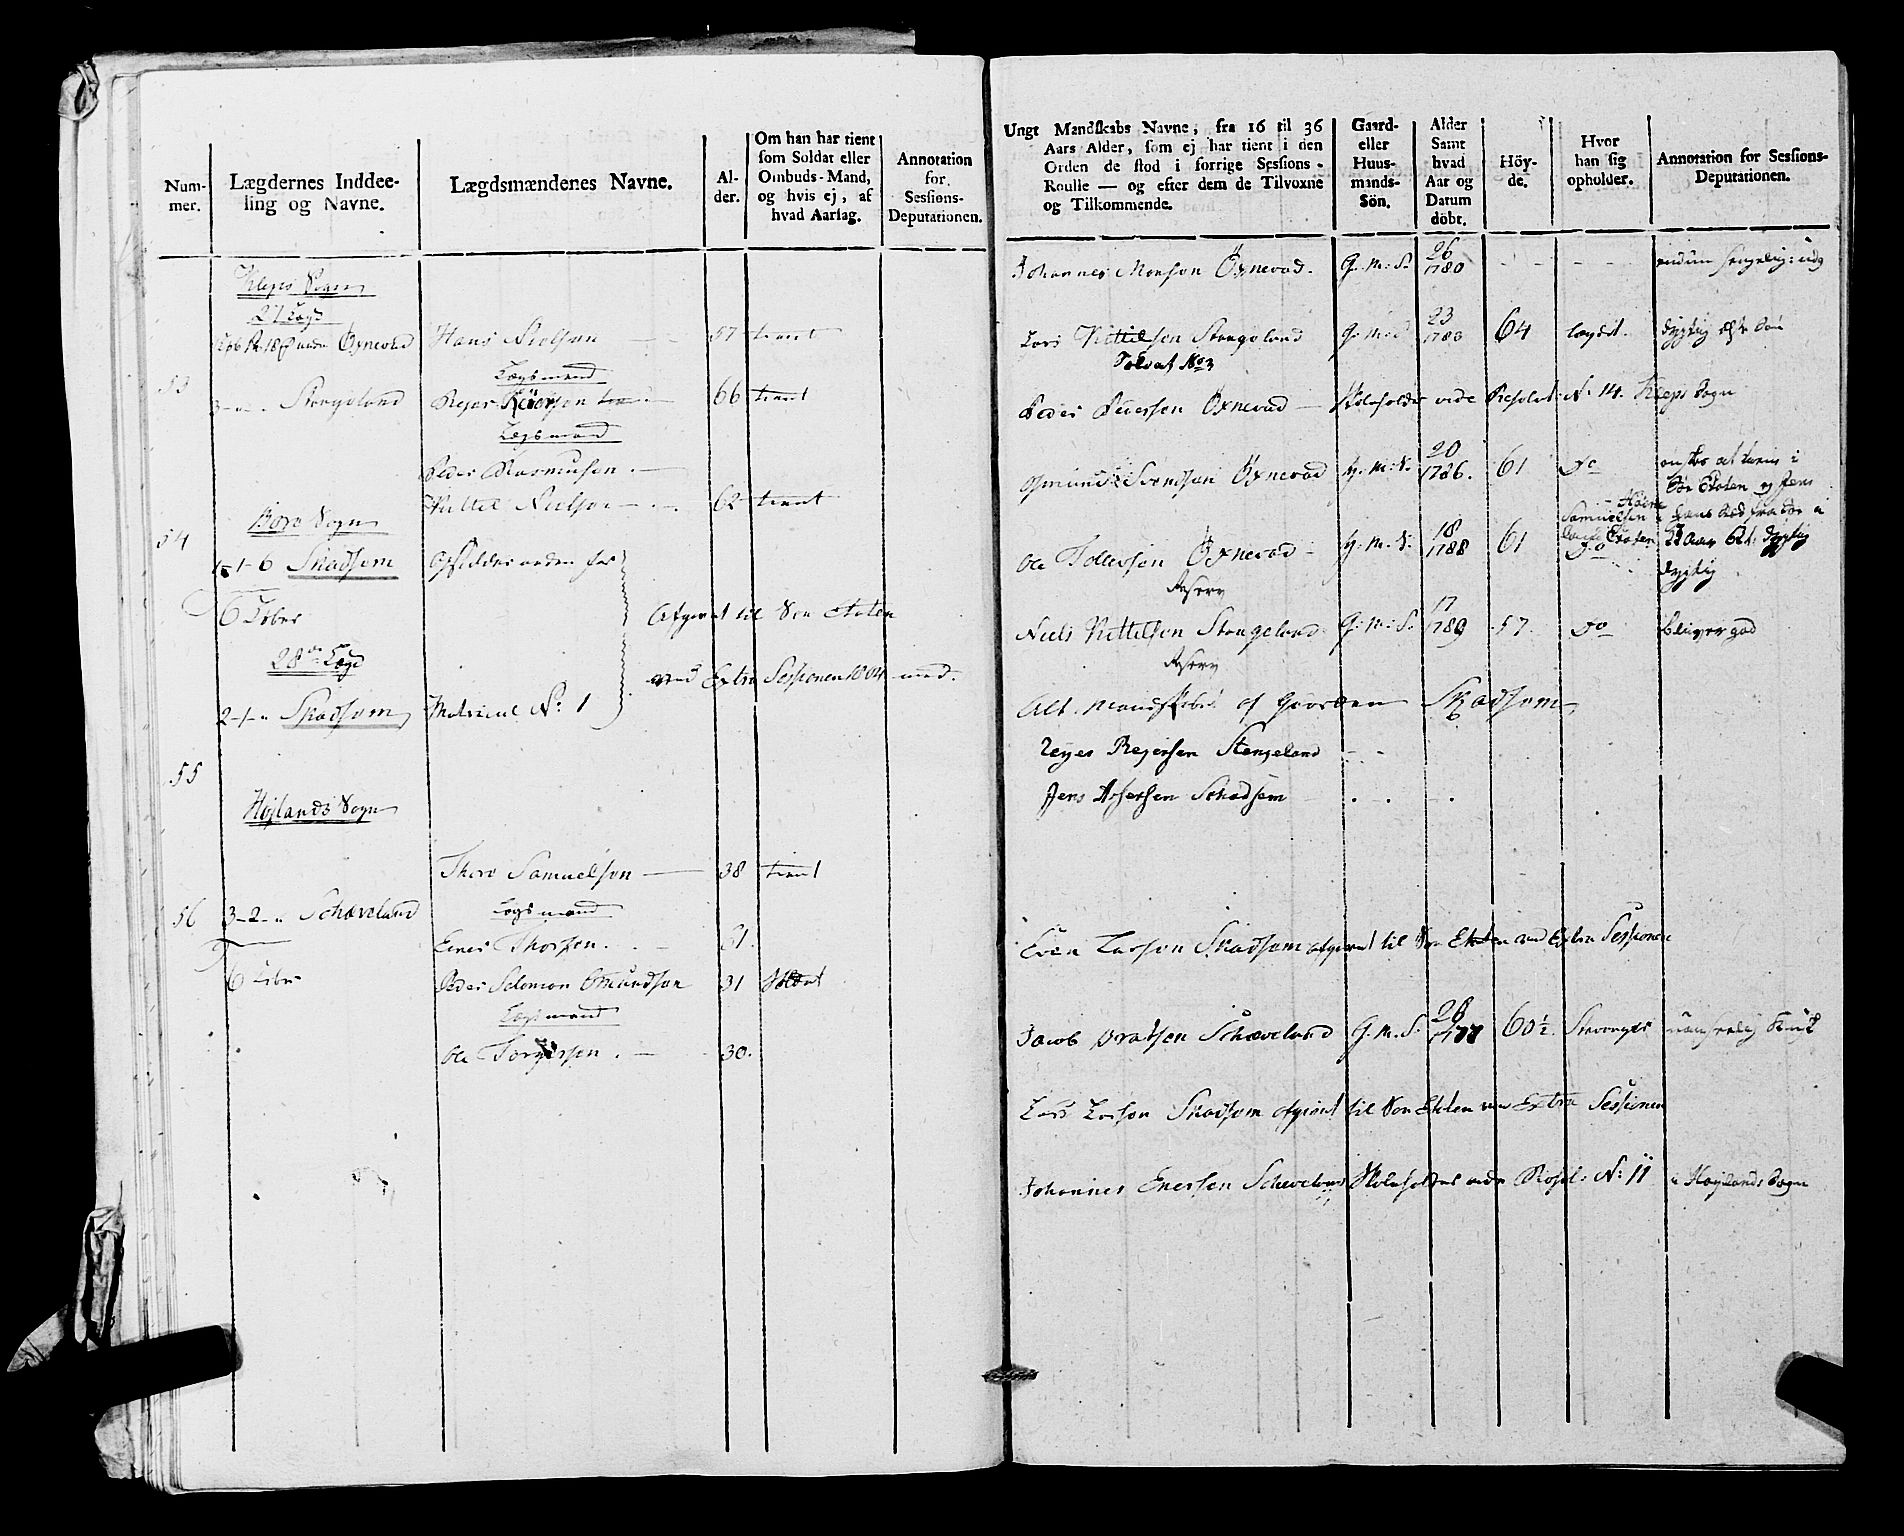 Num-
mer.
Lægdernes Inddee-
ling og Navne.
Lægdsmændenes Navne.
Al-
der.
Om han har tient
som Soldat eller
Ombuds-Mand,
og hvis ej, af
hvad Aarsag.
Annotation
for
Sessions-
Deputationen.
Kleps Sogn
27 Lægd
Öxnevad Hans Nielson 57 tient
Lægsmand
53
Stangeland Rejer Rejerson 66 tient
Lægsmand
Peder Rasmusen
Kittel Nielson 62 tient
54
Bore Sogn
1-1-6 Skadsem
6 Løber
Afgivet til Søe Etaten
28de Lægd
ved Extra Sessionen 1804 med
2-1-" Skadsem Matricul No: 1
55
Højlands Sogn
Thore Samuelson 38 tient
56 3-2-" Schæveland Lægsmand
Ener Thorsen 61.
6 Løber Peder Salomon Omundson 31 Soldat
Lægsmand
Ole Torgerson 30.
Ungt Mandskabs Navne, fra 16 til 36
Aars Alder, som ej har tient i den
Orden de stod i forrige Sessions-
Roulle — og efter dem de Tilvoxne
og Tilkommende.
Gaard-
eller
Huus-
mands-
Sön.
Alder
Samt
hvad
Aar og
Datum
döbt.
Höy-
de.
Hvor
han sig
opholder.
Annotation for Sessions-
Deputationen.
Johannes Monson Öxnevad. G: M: S. 26 1780
Lars Kittelsen Stangeland G: M: S 23 1783 64 Lægdet.
Soldat No 3
Peder Pedersen Öxnevad — Skoleholder vide Resolut: N: 14. Kleps Sogn
Osmund Svendson Öxnevad H: M: S. 20 1786. 61 Do
Ole Tollevson Öxnevad H. M: S. 18 1788 61 Do dygtig
Reserv
Niels Kittelson Stangeland G: M: S. 17 1789 57. Do bliver god
Reserv
Alt Mandskabet af Gaarden Skadsem
Reyer Rejersen Stangeland
Jens Assersen Schadsem
Even Larson Skadsem afgivet til Søe Etaten ved Extra Sessionen
Jacob Schæveland G. M. S. 26 1777 60½ Stavanger
Lars Larson Skadsem afgivet til Søe Etaten ved Extra Sessionen
Johannes Enersen Scheveland Skoleholder vide Resol: N: 11 i Højlands Sogn